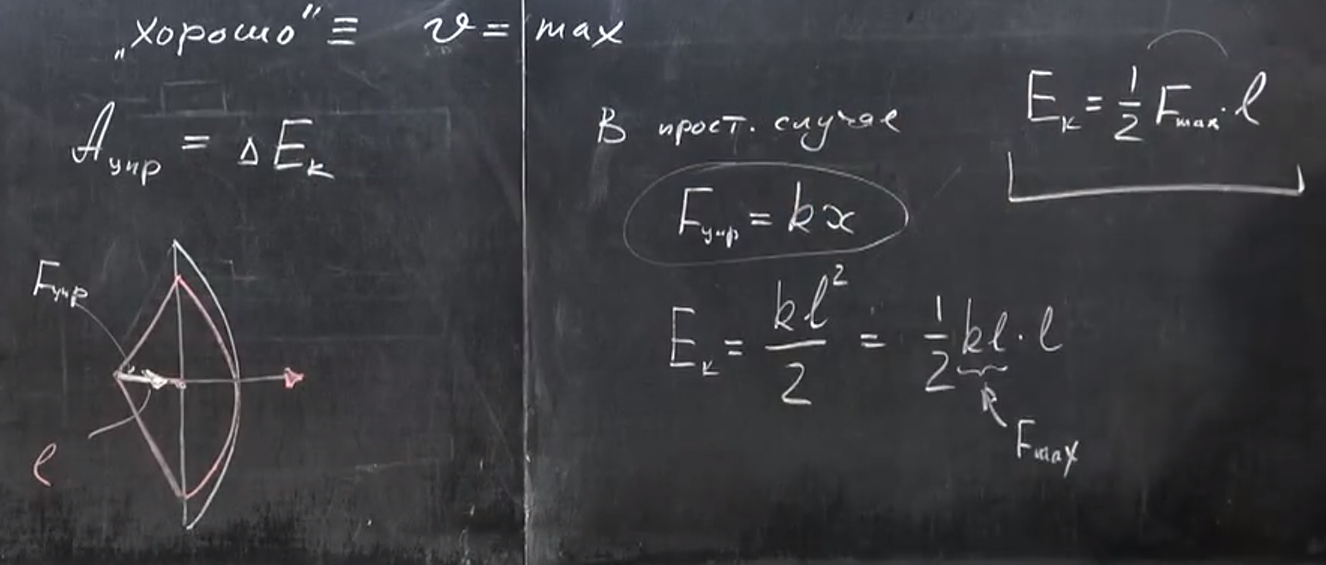 „хорошо" ≡ v = max
A упр = Δ Eк
Fупр
l
В прост. случае
Fупр = kx
Eк = kl²/2 = 1/2 kl · l
Fmax
Eк = 1/2 Fmax · l